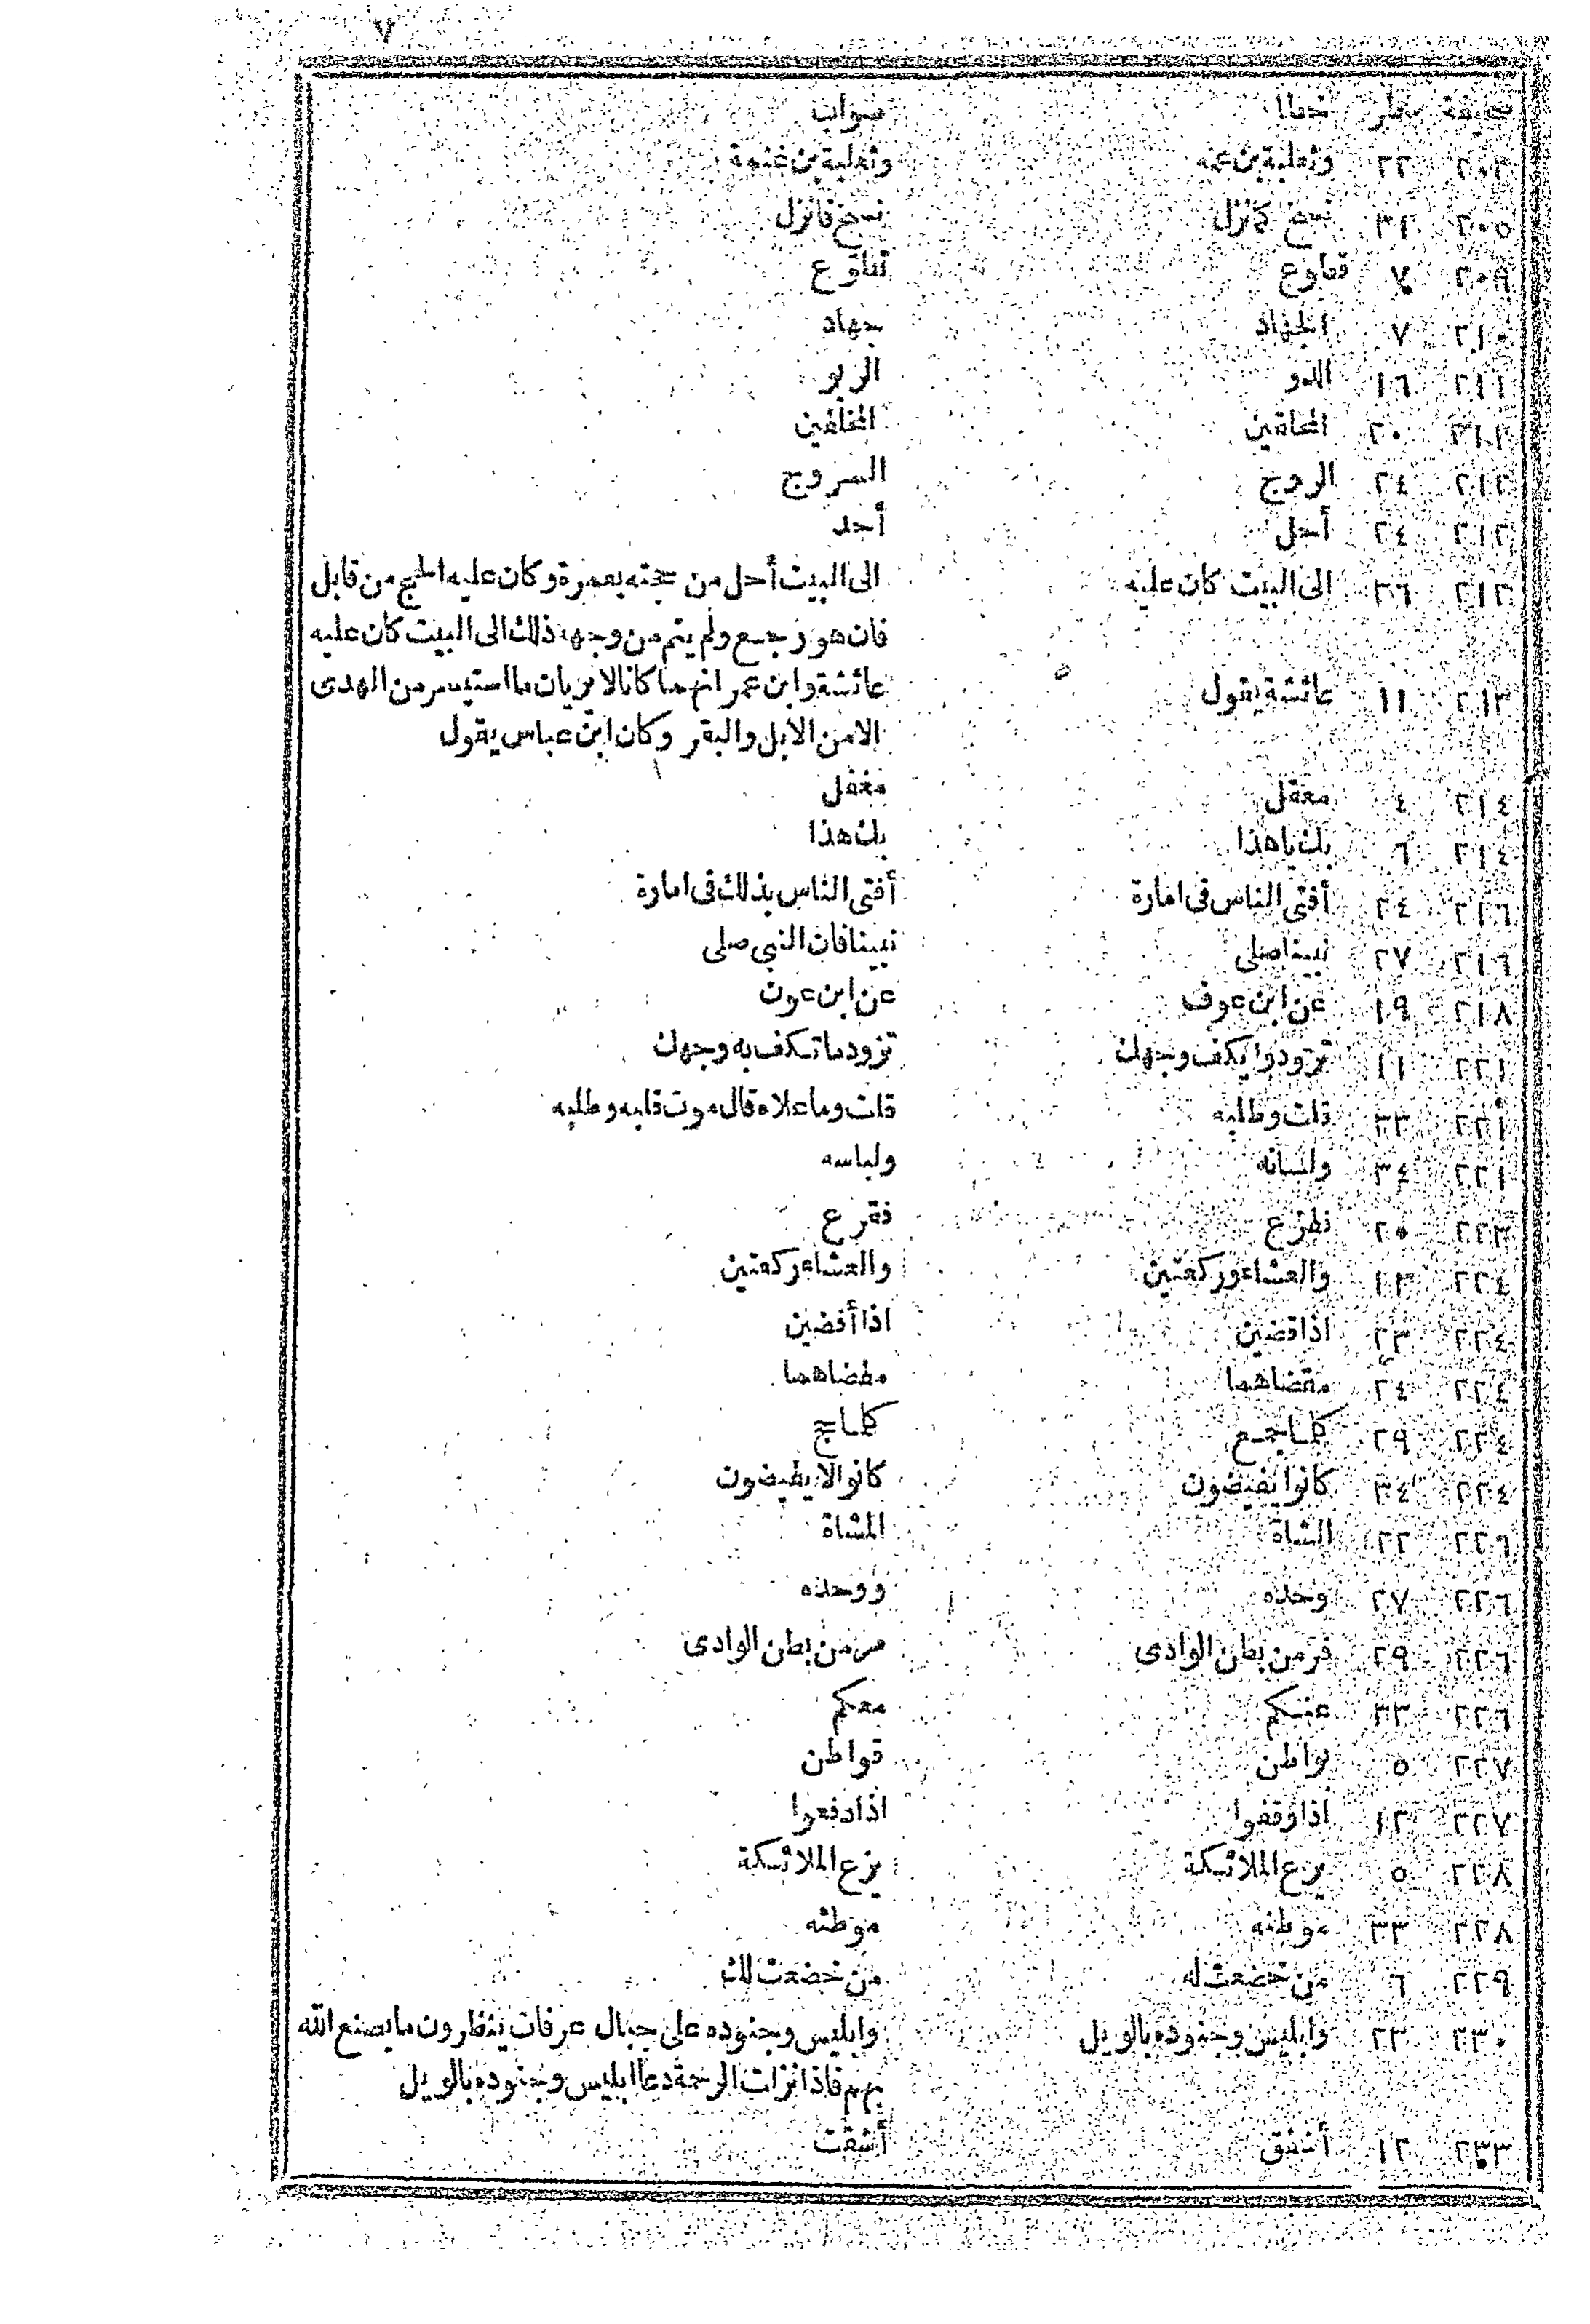 ٧
صحيفة سطر خطا صواب
٢٠٢ ٢٢ وثعلبة بن عنمه وثعلبة بن غنمة
٢٠٥ ٣٢ نسخ كانزل نسخ فانزل
٢٠٩ ٧ فتطوع تطوع
٢١٠ ٧ الجهاد جهاد
٢١١ ١٦ الدو الربو
٢١١ ٢٠ المحلقين المخلفين
٢١٢ ٢٤ الروج السروج
٢١٢ ٢٤ أحل أحد
٢١٢ ٢٦ الى البيت كان عليه الى البيت أحل من حجته بعمرة وكان عليه الحج من قابل
فان هو رجع ولم يتم من وجهه ذلك الى البيت كان عليه
٢١٣ ١١ عائشة يقول عائشة وابن عمر انهما كانا لا يريان ما استيسر من الهدى
الا من الابل والبقر وكان ابن عباس يقول
٢١٤ ٤ معقل مغفل
٢١٤ ٦ بك ياهذا بك هذا
٢١٦ ٢٤ أفتى الناس فى امارة أفتى الناس بذلك فى امارة
٢١٦ ٢٧ نبينا صلى نبينا فان النبي صلى
٢١٨ ١٩ عن ابن عوف عن ابن عون
٢٢١ ١١ تزودوا يكف وجهك تزود ما تكف به وجهك
٢٢١ ٣٣ قلت وطلبه قلت وما علاه قال موت قلبه وطلبه
٢٢١ ٣٤ ولسانه ولباسه
٢٢٣ ٢٠ فقرع
٢٢٤ ١٣ والعشاء وركعتين والعشاء ركعتين
٢٢٤ ٢٣ اذا قضين اذا أفضين
٢٢٤ ٢٤ مقضاهما مفضاهما
٢٢٤ ٢٩ كلما جمع كلما حج
٢٢٤ ٣٤ كانوا يفيضون كانوا لا يفيضون
٢٢٦ ٢٢ الشاة المشاة
٢٢٦ ٢٧ وحده ووحده
٢٢٦ ٢٩ فر من بطن الوادى مر من بطن الوادى
٢٢٦ ٣٣ عنكم معكم
٢٢٧ ٥ نواطن قواطن
٢٢٧ ١٢ اذا وقفوا اذا دفعوا
٢٢٨ ٥ يرع الملائكة يزع الملائكة
٢٢٨ ٣٣ موطنه موطئه
٢٢٩ ٦ من خضعت له من خضعت لك
٢٣٠ ٢٣ وابليس وجنوده بالويل وابليس وجنوده على جبال عرفات ينظرون ما يصنع الله
بهم فاذا نزلت الرحمة دعا ابليس وجنوده بالويل
٢٣٣ ١٢ أشفق أشفقت